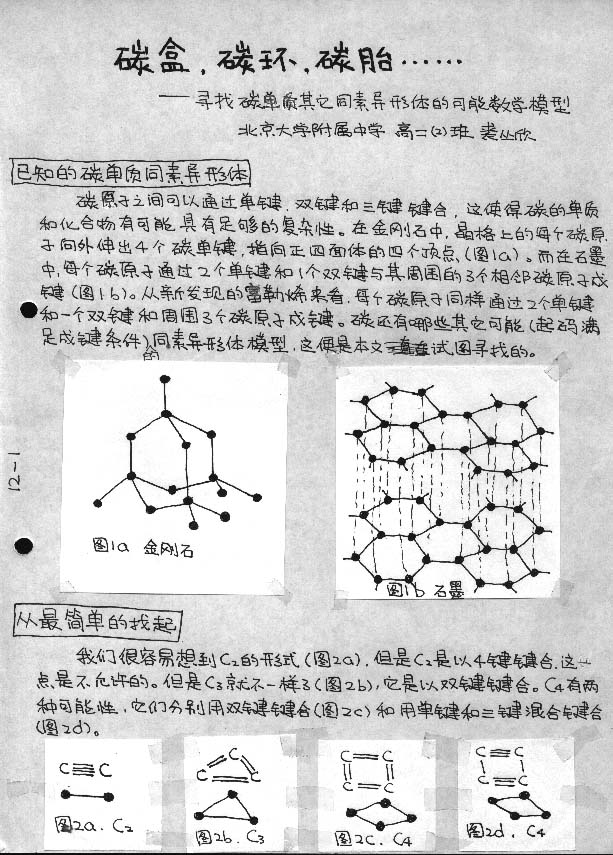 碳盒、碳环、碳胎……
——寻找碳单质其它同素异形体的可能数学模型
北京大学附属中学 高二(2)班 裘丛欣
已知的碳单质同素异形体
碳原子之间可以通过单键、双键和三键键合，这使得碳的单质
和化合物有可能具有足够的复杂性。在金刚石中，晶格上的每个碳原
子向外伸出4个碳单键，指向正四面体的四个顶点(图1a)。而在石墨
中，每个碳原子通过2个单键和1个双键与其周围的3个相邻碳原子成
键(图1b)。从新发现的富勒烯来看，每个碳原子同样通过2个单键
和一个双键和周围3个碳原子成键。碳还有哪些其它可能(起码满
足成键条件)的同素异形体模型，这便是本文试图寻找的。
12-1
图1a 金刚石
图1b 石墨
从最简单的找起
我们很容易想到C₂的形式(图2a)，但是C₂是以4键键合，这一
点是不允许的。但是C₃就不一样了(图2b)，它是以双键键合。C₄有两
种可能性，它们分别用双键键合(图2c)和用单键和三键混合键合
(图2d)。
C C
图2a. C₂
C
C C
图2b. C₃
C C
C C
图2c. C₄
C C
C C
图2d. C₄